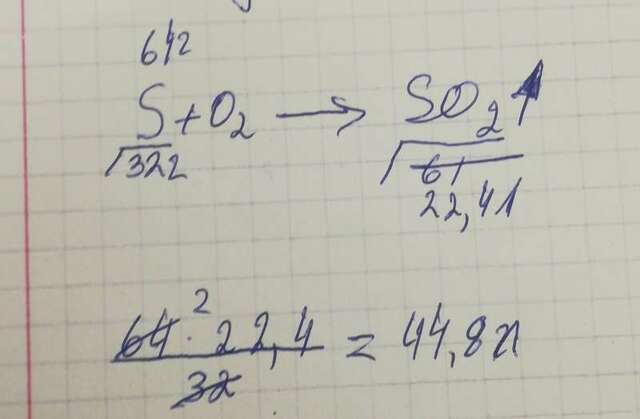 64г
S + O₂ → SO₂↑
32г 22,4л
64 · 22,4 / 32 = 44,8л